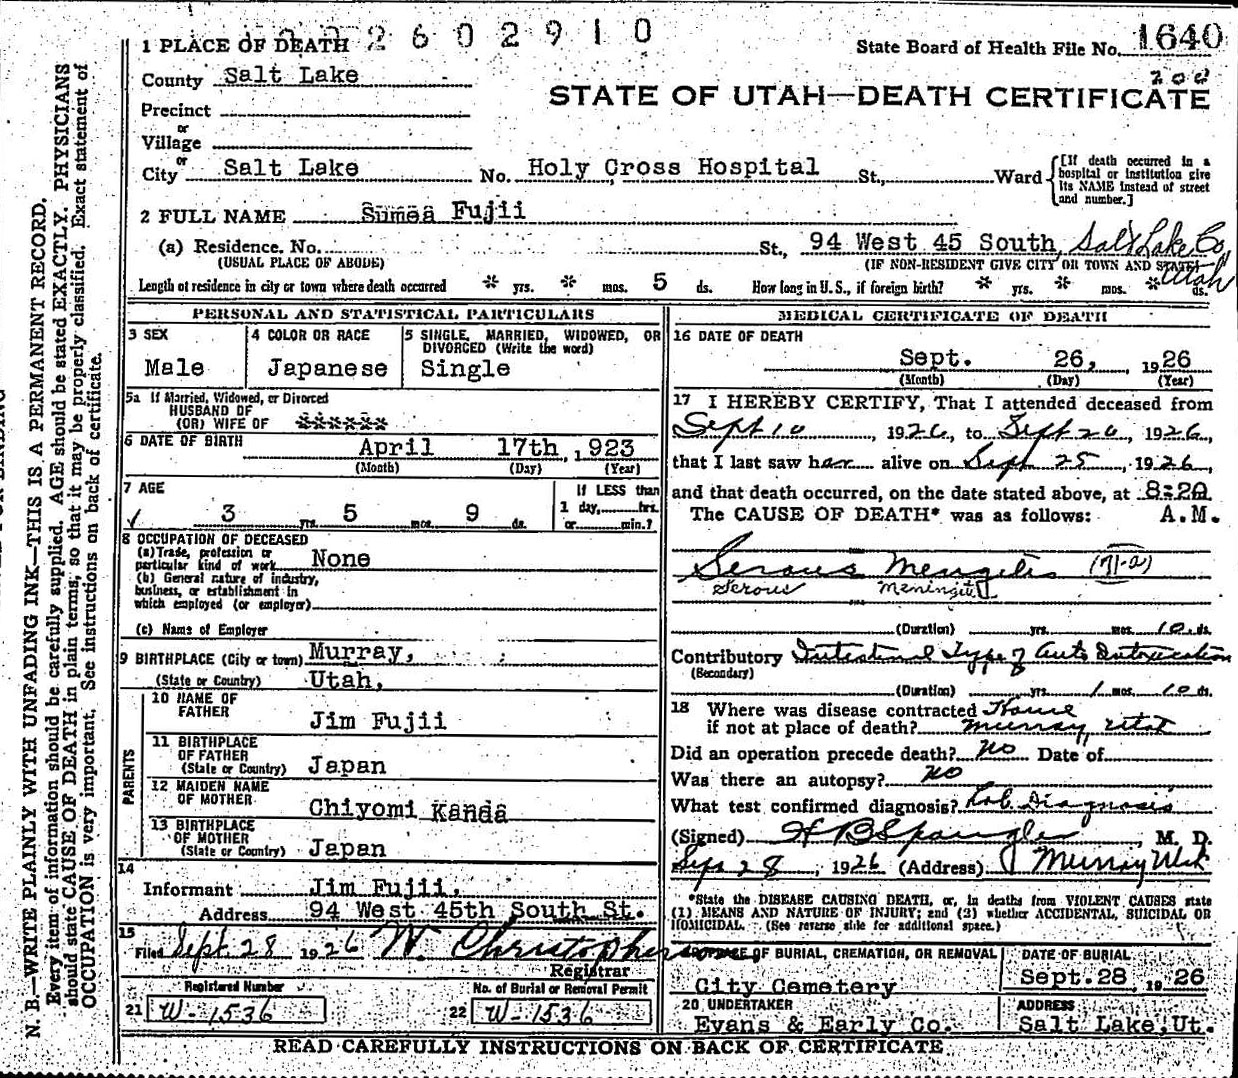 2 6 0 2 9 1 0
1 PLACE OF DEATH
State Board of Health File No. 1640
County Salt Lake
200
STATE OF UTAH—DEATH CERTIFICATE
Precinct
or
Village
or
City Salt Lake No. Holy Cross Hospital St., Ward
[If death occurred in a hospital or institution give its NAME instead of street and number.]
2 FULL NAME Sumea Fujii
(a) Residence. No. St., 94 West 45 South, Salt Lake Co, Utah
(USUAL PLACE OF ABODE) (IF NON-RESIDENT GIVE CITY OR TOWN AND STATE)
Length of residence in city or town where death occurred * yrs. * mos. 5 ds. How long in U. S., if foreign birth? * yrs. * mos. * ds.
PERSONAL AND STATISTICAL PARTICULARS
3 SEX
Male
4 COLOR OR RACE
Japanese
5 SINGLE, MARRIED, WIDOWED, OR
DIVORCED (Write the word)
Single
5a If Married, Widowed, or Divorced
HUSBAND OF
(OR) WIFE OF ******
6 DATE OF BIRTH
April 17th, 1923
(Month) (Day) (Year)
7 AGE
3 yrs. 5 mos. 9 ds.
If LESS than
1 day, hrs.
or min.?
8 OCCUPATION OF DECEASED
(a) Trade, profession or
particular kind of work None
(b) General nature of industry,
business, or establishment in
which employed (or employer)
(c) Name of Employer
9 BIRTHPLACE (City or town) Murray,
(State or Country) Utah,
PARENTS
10 NAME OF
FATHER Jim Fujii
11 BIRTHPLACE
OF FATHER
(State or Country) Japan
12 MAIDEN NAME
OF MOTHER Chiyomi Kanda
13 BIRTHPLACE
OF MOTHER
(State or Country) Japan
14
Informant Jim Fujii.
Address 94 West 45th South St.
15
Filed Sept. 28 1926 W. Christopherson
Registrar
Registered Number
21 W-1536
No. of Burial or Removal Permit
22 W-1536
MEDICAL CERTIFICATE OF DEATH
16 DATE OF DEATH
Sept. 26, 1926
(Month) (Day) (Year)
17 I HEREBY CERTIFY, That I attended deceased from
Sept 10, 1926, to Sept 26, 1926,
that I last saw h alive on Sept 25, 1926,
and that death occurred, on the date stated above, at 8:20
The CAUSE OF DEATH* was as follows: A.M.
Serous Mengitis (71-2)
Serous Meningitis
(Duration) yrs. mos. 10 ds.
Contributory Intestinal Type of Auto Intoxication
(Secondary)
(Duration) yrs. 1 mos. 10 ds.
18 Where was disease contracted Home
if not at place of death? Murray, Utah
Did an operation precede death? No Date of
Was there an autopsy? No
What test confirmed diagnosis? Lab. Diagnosis
(Signed) H B Spangler M. D.
Sept 28, 1926 (Address) Murray Utah
*State the DISEASE CAUSING DEATH, or, in deaths from VIOLENT CAUSES state
(1) MEANS AND NATURE OF INJURY; and (2) whether ACCIDENTAL, SUICIDAL OR
HOMICIDAL. (See reverse side for additional space.)
OF BURIAL, CREMATION, OR REMOVAL
City Cemetery
DATE OF BURIAL
Sept. 28, 1926
20 UNDERTAKER
Evans & Early Co.
ADDRESS
Salt Lake, Ut.
READ CAREFULLY INSTRUCTIONS ON BACK OF CERTIFICATE
N. B.—WRITE PLAINLY WITH UNFADING INK—THIS IS A PERMANENT RECORD.
Every item of information should be carefully supplied. AGE should be stated EXACTLY. PHYSICIANS
should state CAUSE OF DEATH in plain terms, so that it may be properly classified. Exact statement of
OCCUPATION is very important. See instructions on back of certificate.